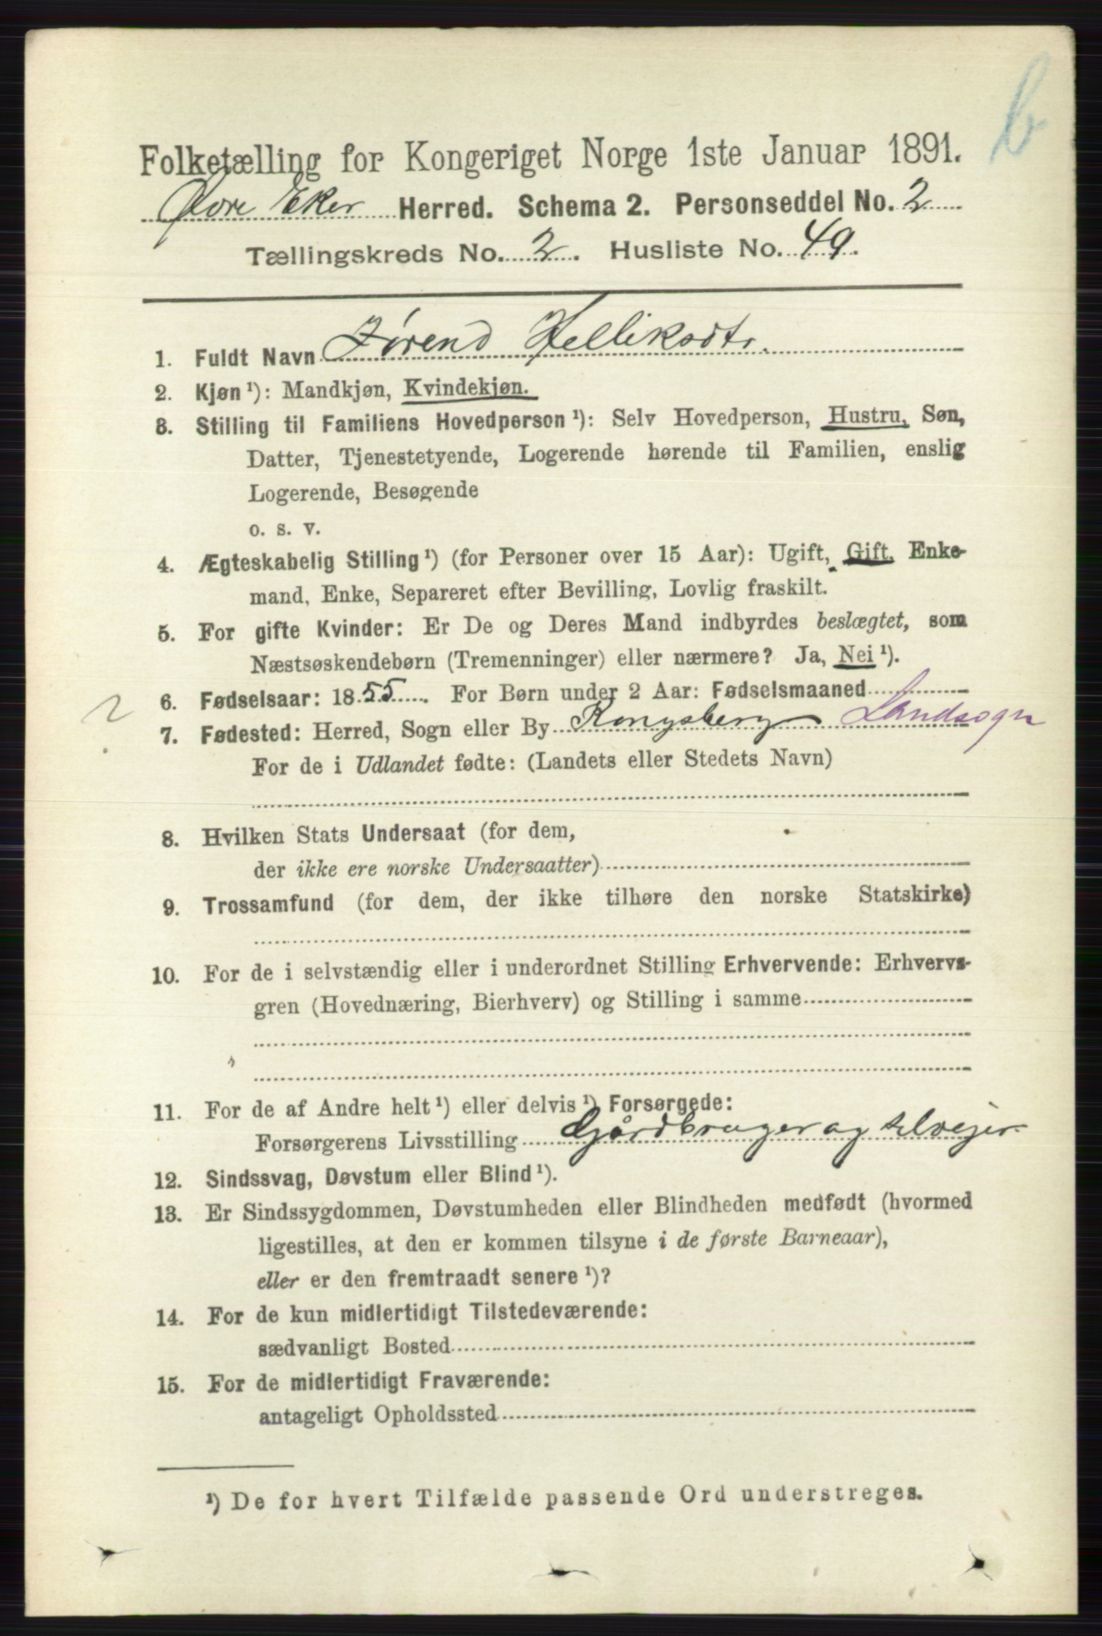 b
Folketælling for Kongeriget Norge 1ste Januar 1891.
Øvre Eker Herred. Schema 2. Personseddel No. 2
Tællingskreds No. 2. Husliste No. 49.
1. Fuldt Navn Jørend Helliksdtr.
2. Kjøn ¹): Mandkjøn, Kvindekjøn.
3. Stilling til Familiens Hovedperson ¹): Selv Hovedperson, Hustru, Søn,
Datter, Tjenestetyende, Logerende hørende til Familien, enslig
Logerende, Besøgende
o. s. v.
4. Ægteskabelig Stilling ¹) (for Personer over 15 Aar): Ugift, Gift, Enke-
mand, Enke, Separeret efter Bevilling, Lovlig fraskilt.
5. For gifte Kvinder: Er De og Deres Mand indbyrdes beslægtet, som
Næstsøskendebørn (Tremenninger) eller nærmere? Ja, Nei ¹).
6. Fødselsaar: 1855. For Børn under 2 Aar: Fødselsmaaned
7. Fødested: Herred, Sogn eller By Kongsberg Landsogn
For de i Udlandet fødte: (Landets eller Stedets Navn)
8. Hvilken Stats Undersaat (for dem,
der ikke ere norske Undersaatter)
9. Trossamfund (for dem, der ikke tilhøre den norske Statskirke)
10. For de i selvstændig eller i underordnet Stilling Erhvervende: Erhvervs-
gren (Hovednæring, Bierhverv) og Stilling i samme
11. For de af Andre helt ¹) eller delvis ¹) Forsørgede:
Forsørgerens Livsstilling Gårdbruger og selveier
12. Sindssvag, Døvstum eller Blind ¹).
13. Er Sindssygdommen, Døvstumheden eller Blindheden medfødt (hvormed
ligestilles, at den er kommen tilsyne i de første Barneaar),
eller er den fremtraadt senere ¹)?
14. For de kun midlertidigt Tilstedeværende:
sædvanligt Bosted
15. For de midlertidigt Fraværende:
antageligt Opholdssted
¹) De for hvert Tilfælde passende Ord understreges.